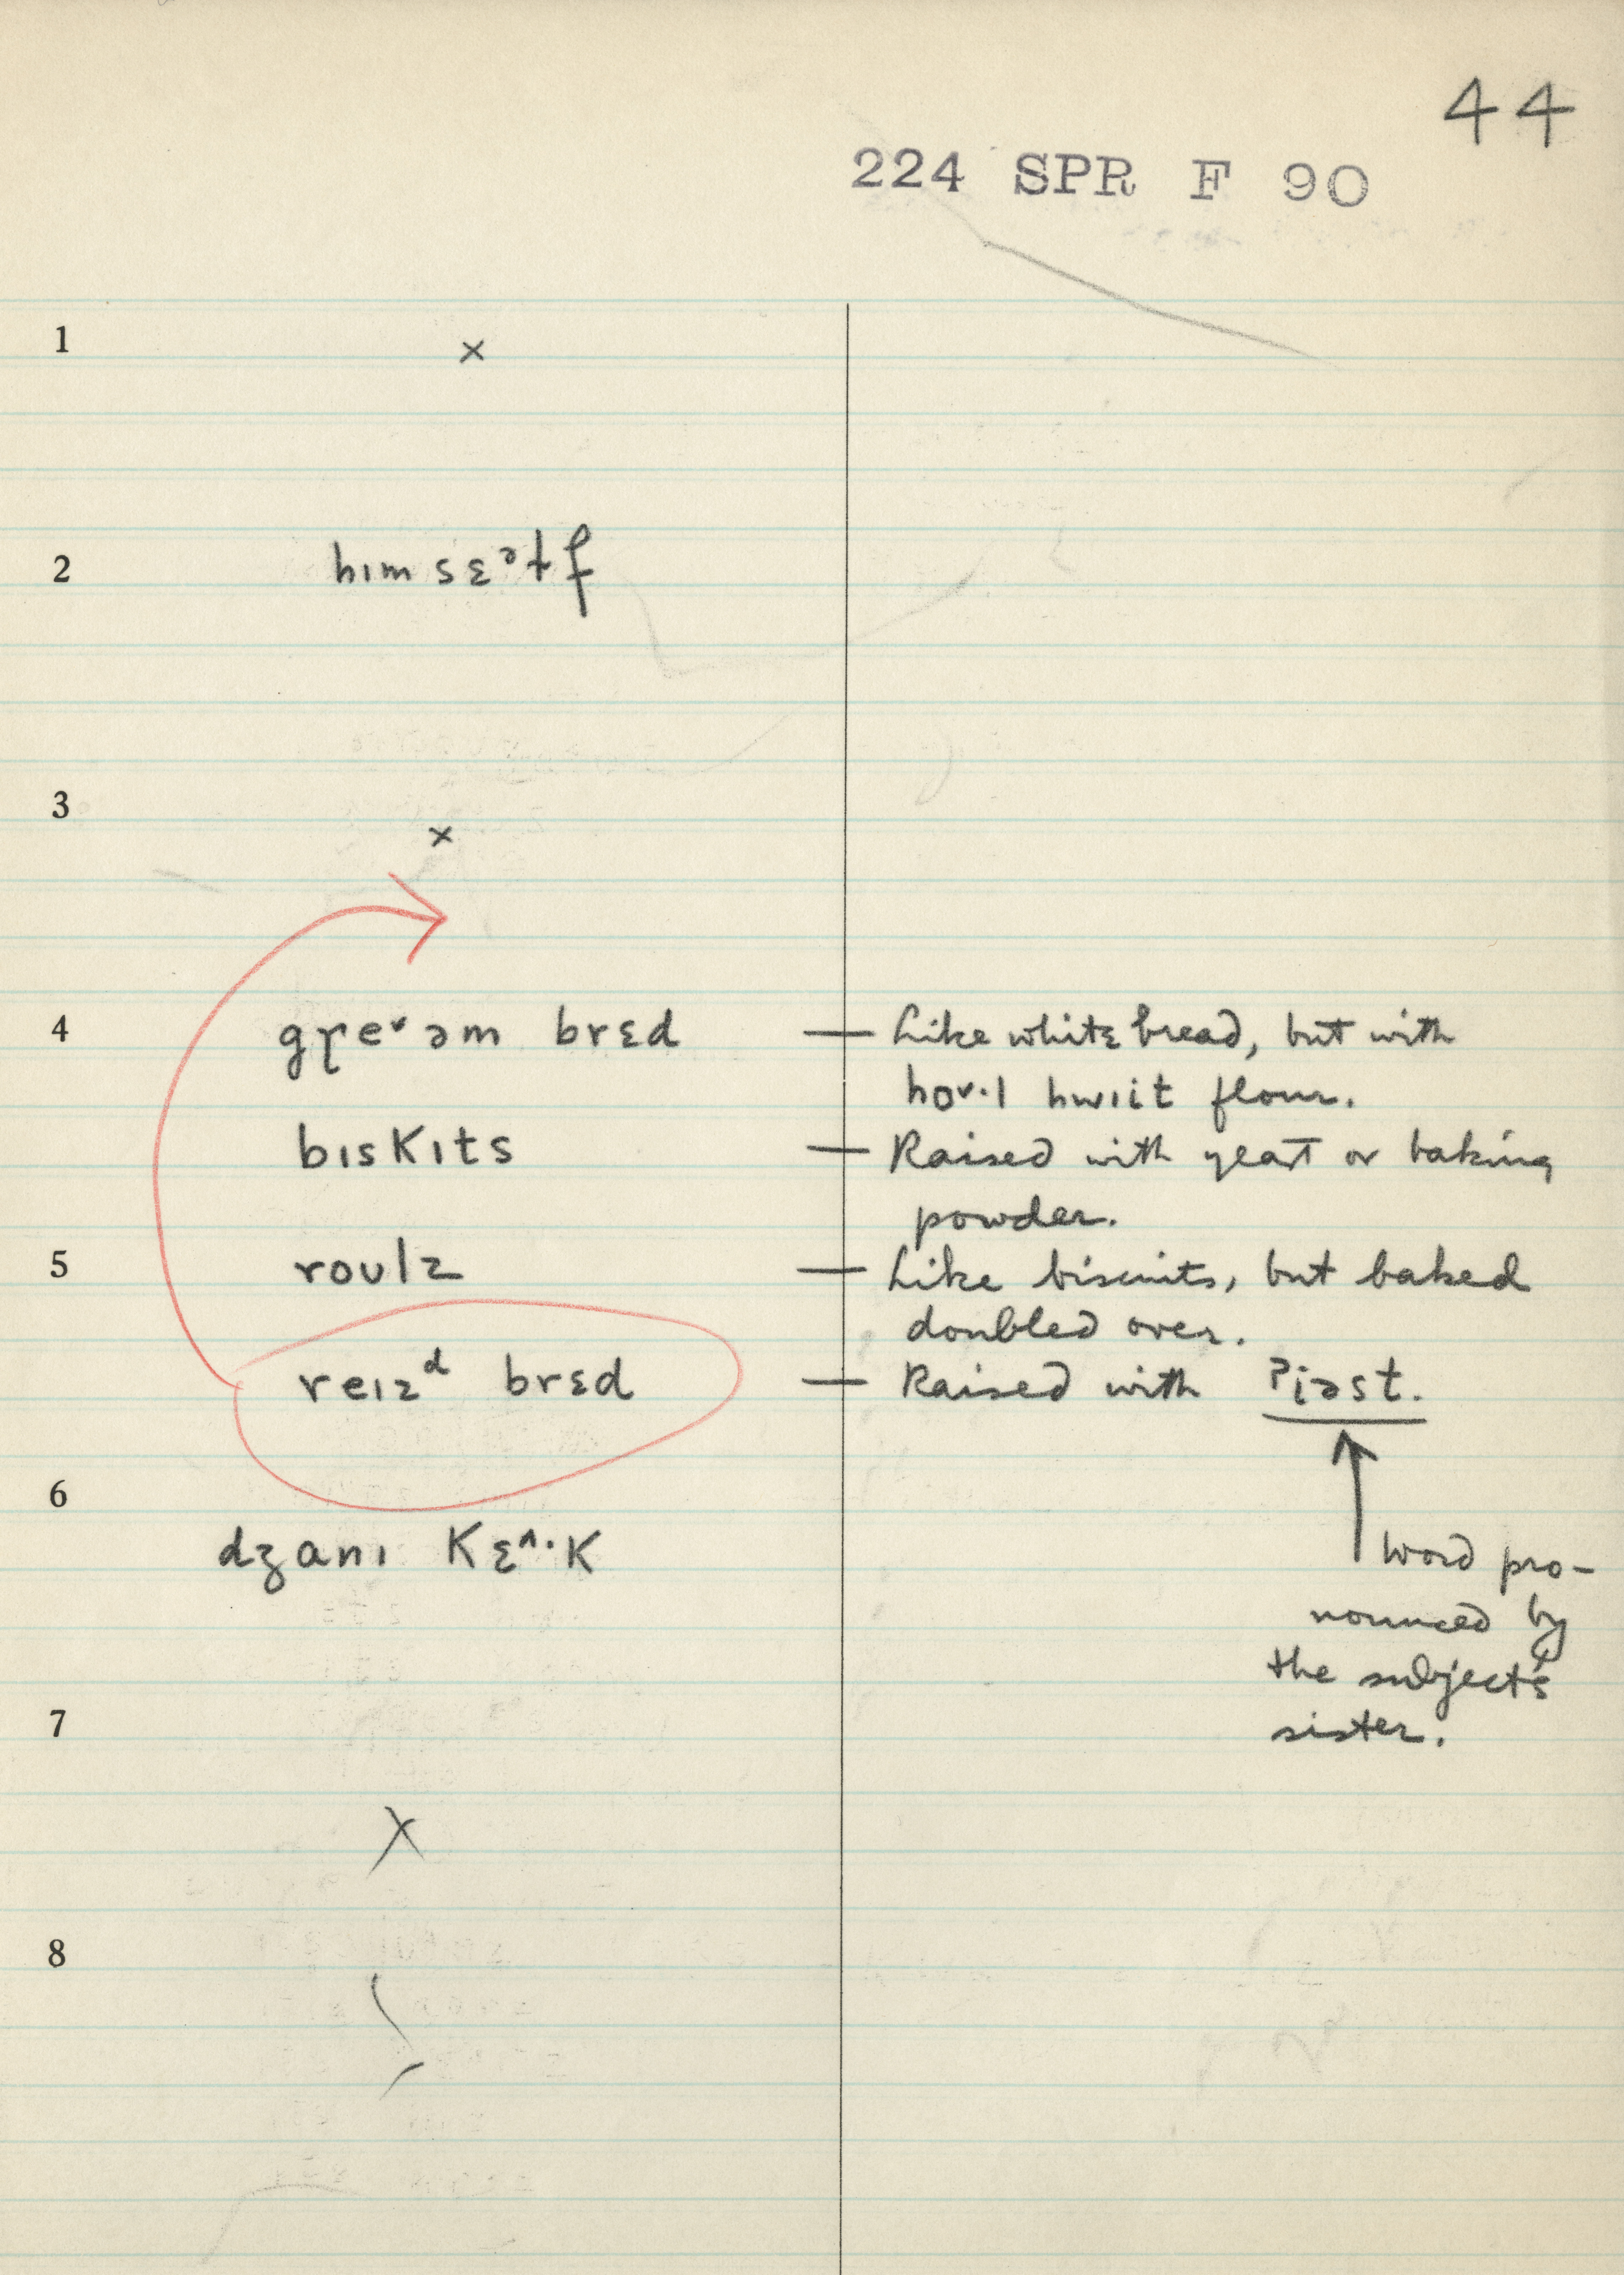 44
224 SPR F 90
1 ×
2 hɪm sɛᵊɫf
3 ×
4 gɼe˅əm brɛd — Like white bread, but with
ho˅·l hwiit flour.
bɪskɪts — Raised with yeast or baking
powder.
5 roʊlz — Like biscuits, but baked
doubled over.
reɪzᵈ brɛd — Raised with ʔiəst.
6
dʒanɪ kɛ^·k
word pro-
nounced by
the subject's
sister.
7
×
8